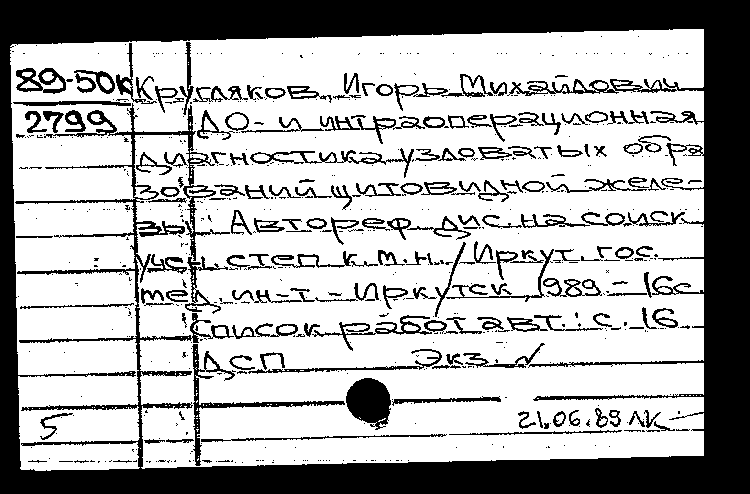 89-50к Кругляков, Игорь Михайлович
2799 До- и интраоперационная
диагностика узловатых обра
зований щитовидной желе-
зы : Автореф. дис. на соиск
учен. степ к.м.н. / Иркут. гос.
мед. ин-т. - Иркутск, 1989 - 16с.
Список работ авт.: с. 16
ДСП Экз. √
5 21.06.89 ЛК